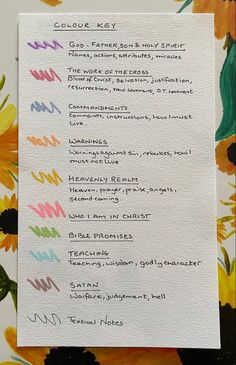 COLOUR KEY
GOD - FATHER, SON & HOLY SPIRIT
Names, actions, attributes, miracles
THE WORK OF THE CROSS
Blood of Christ, Salvation, justification,
resurrection, new covenant, O.T. covenant
COMMANDMENTS
Commands, instructions, how I must
live.
WARNINGS
Warnings against sin, rebukes, how I
must not live
HEAVENLY REALM
Heaven, prayer, praise, angels,
second coming.
WHO I AM IN CHRIST
BIBLE PROMISES
TEACHING
Teaching, wisdom, godly character
SATAN
Warfare, judgement, hell
Textual Notes